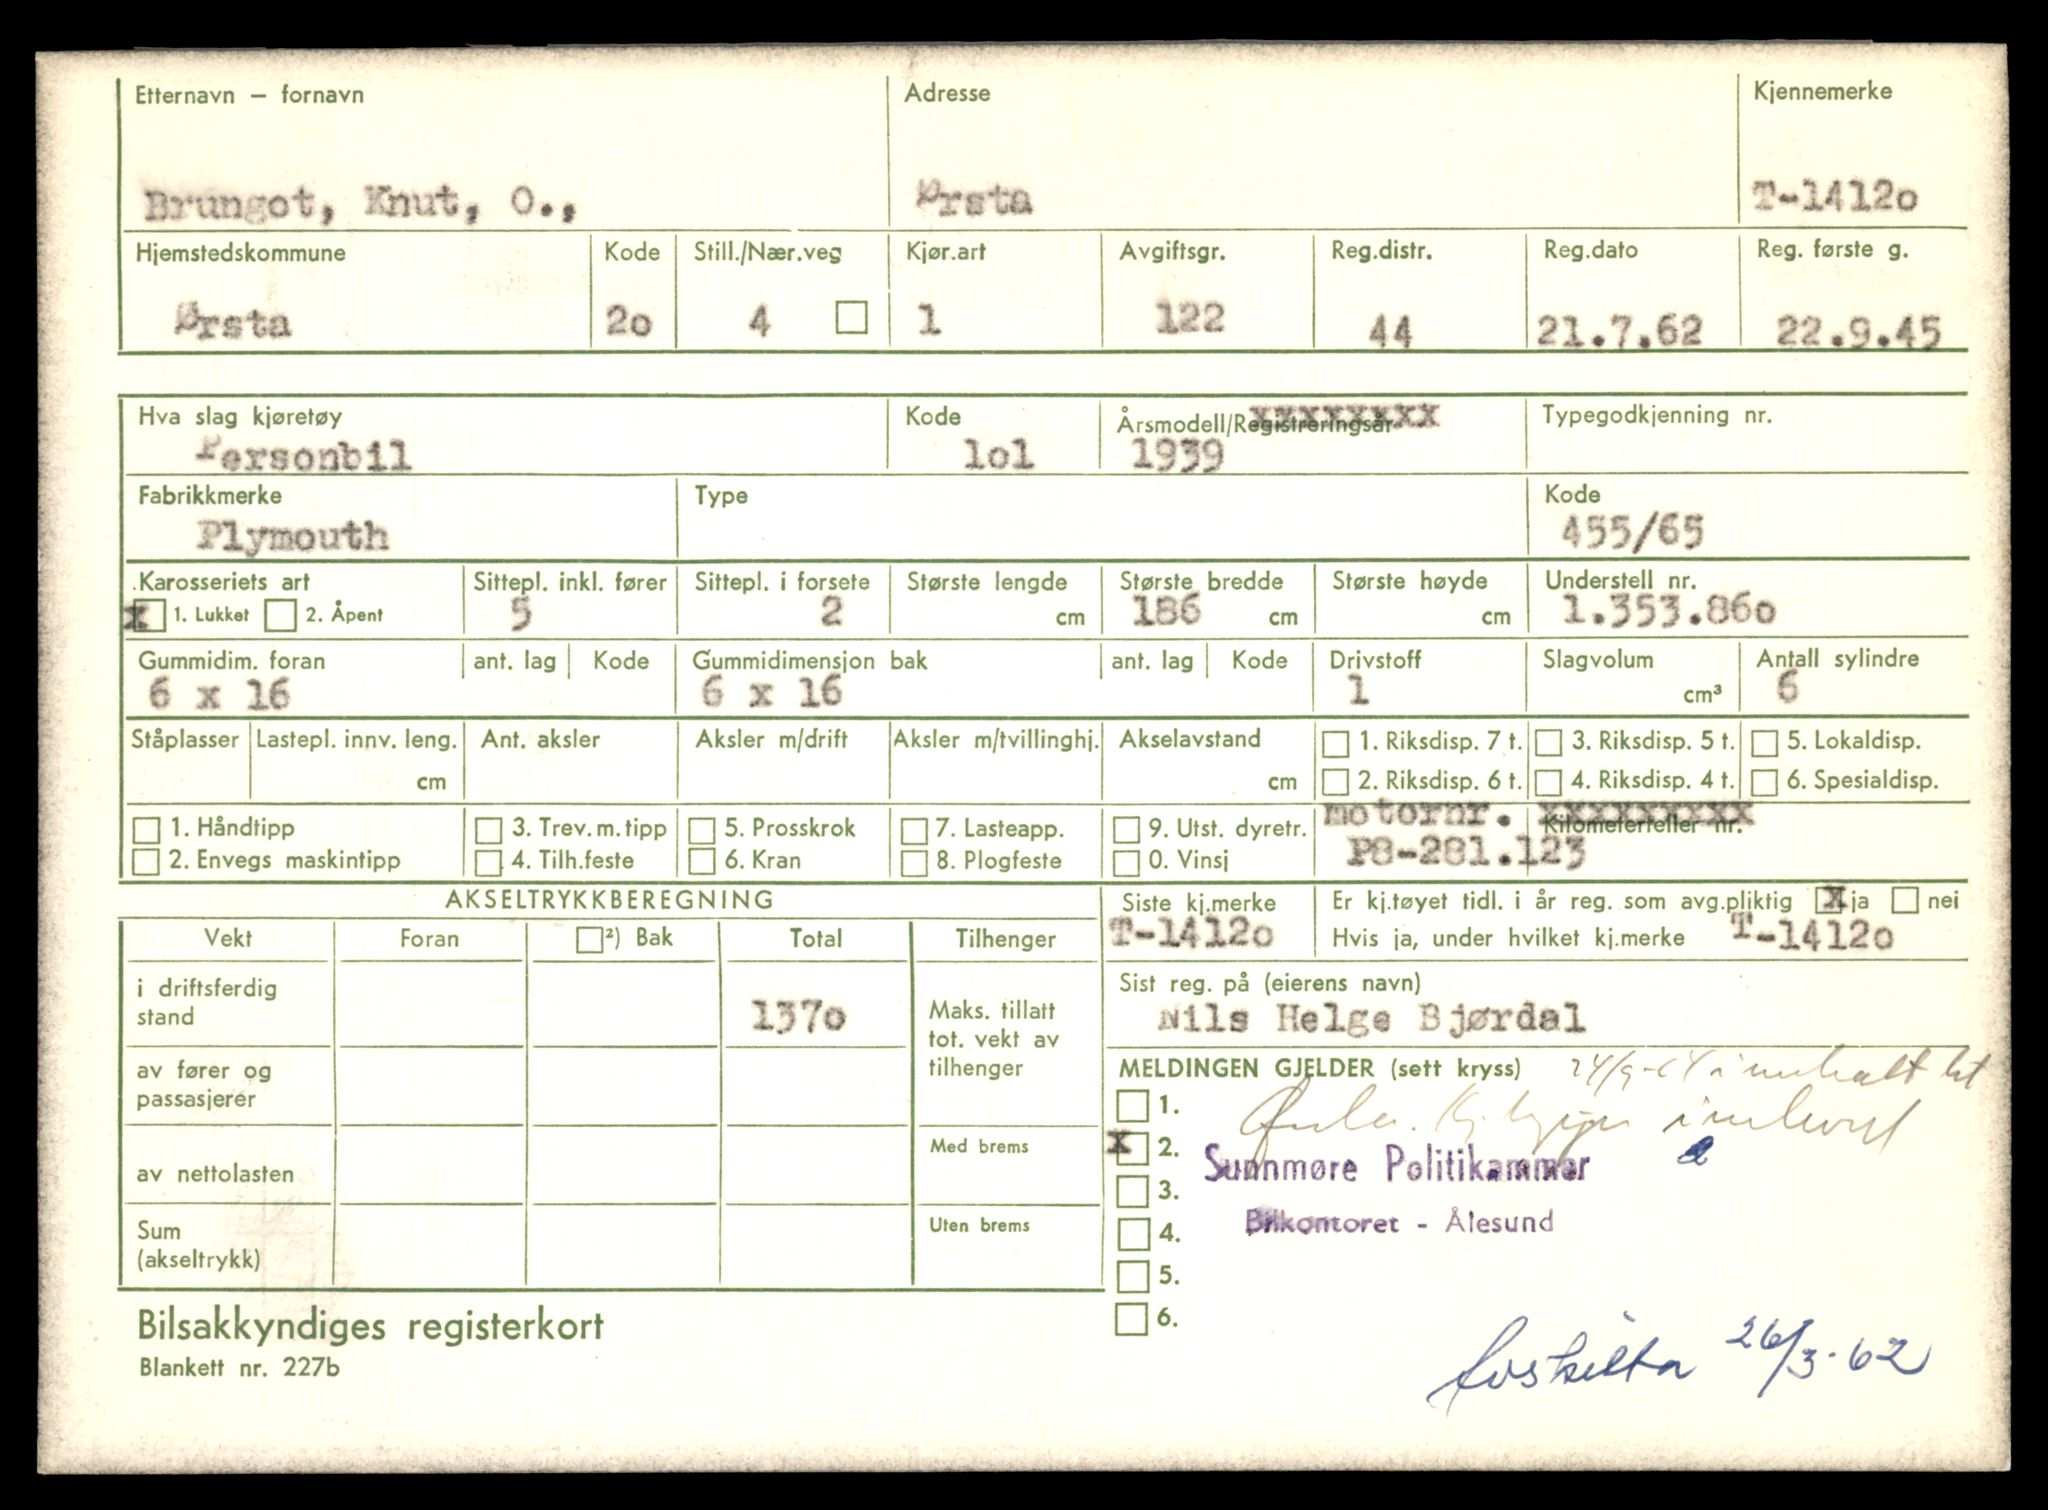 Etternavn – fornavn Adresse Kjennemerke
Brungot, Knut, O., Ørsta T-1412o
Hjemstedskommune Kode Still./Nær.veg Kjør.art Avgiftsgr. Reg.distr. Reg.dato Reg. første g.
Ørsta 2o 4 1 122 44 21.7.62 22.9.45
Hva slag kjøretøy Kode Årsmodell/Registreringsår xxxxxxxx Typegodkjenning nr.
Personbil lol 1939
Fabrikkmerke Type Kode
Plymouth 455/65
Karosseriets art Sittepl. inkl. fører Sittepl. i forsete Største lengde Største bredde Største høyde Understell nr.
x 1. Lukket 2. Åpent 5 2 cm 186 cm cm 1.353.86o
Gummidim. foran ant. lag Kode Gummidimensjon bak ant. lag Kode Drivstoff Slagvolum Antall sylindre
6 x 16 6 x 16 1 cm³ 6
Ståplasser Lastepl. innv. leng. Ant. aksler Aksler m/drift Aksler m/tvillinghj. Akselavstand 1. Riksdisp. 7 t. 3. Riksdisp. 5 t. 5. Lokaldisp.
cm cm 2. Riksdisp. 6 t. 4. Riksdisp. 4 t. 6. Spesialdisp.
1. Håndtipp 3. Trev. m. tipp 5. Prosskrok 7. Lasteapp. 9. Utst. dyretr. motornr. xxxxxxxxx Kilometerteller nr.
2. Envegs maskintipp 4. Tilh.feste 6. Kran 8. Plogfeste 0. Vinsj P8-281.123
AKSELTRYKKBEREGNING Siste kj.merke Er kj.tøyet tidl. i år reg. som avg.pliktig x ja nei
Vekt Foran ²) Bak Total Tilhenger T-1412o Hvis ja, under hvilket kj.merke T-1412o
i driftsferdig stand 137o Maks. tillatt tot. vekt av tilhenger Sist reg. på (eierens navn)
Nils Helge Bjørdal
av fører og passasjerer MELDINGEN GJELDER (sett kryss)
1.
Med brems x 2. Sunnmøre Politikammer
av nettolasten 3.
Sum (akseltrykk) Uten brems 4. Bilkontoret - Ålesund
5.
Bilsakkyndiges registerkort 6.
Blankett nr. 227b 26/3-62